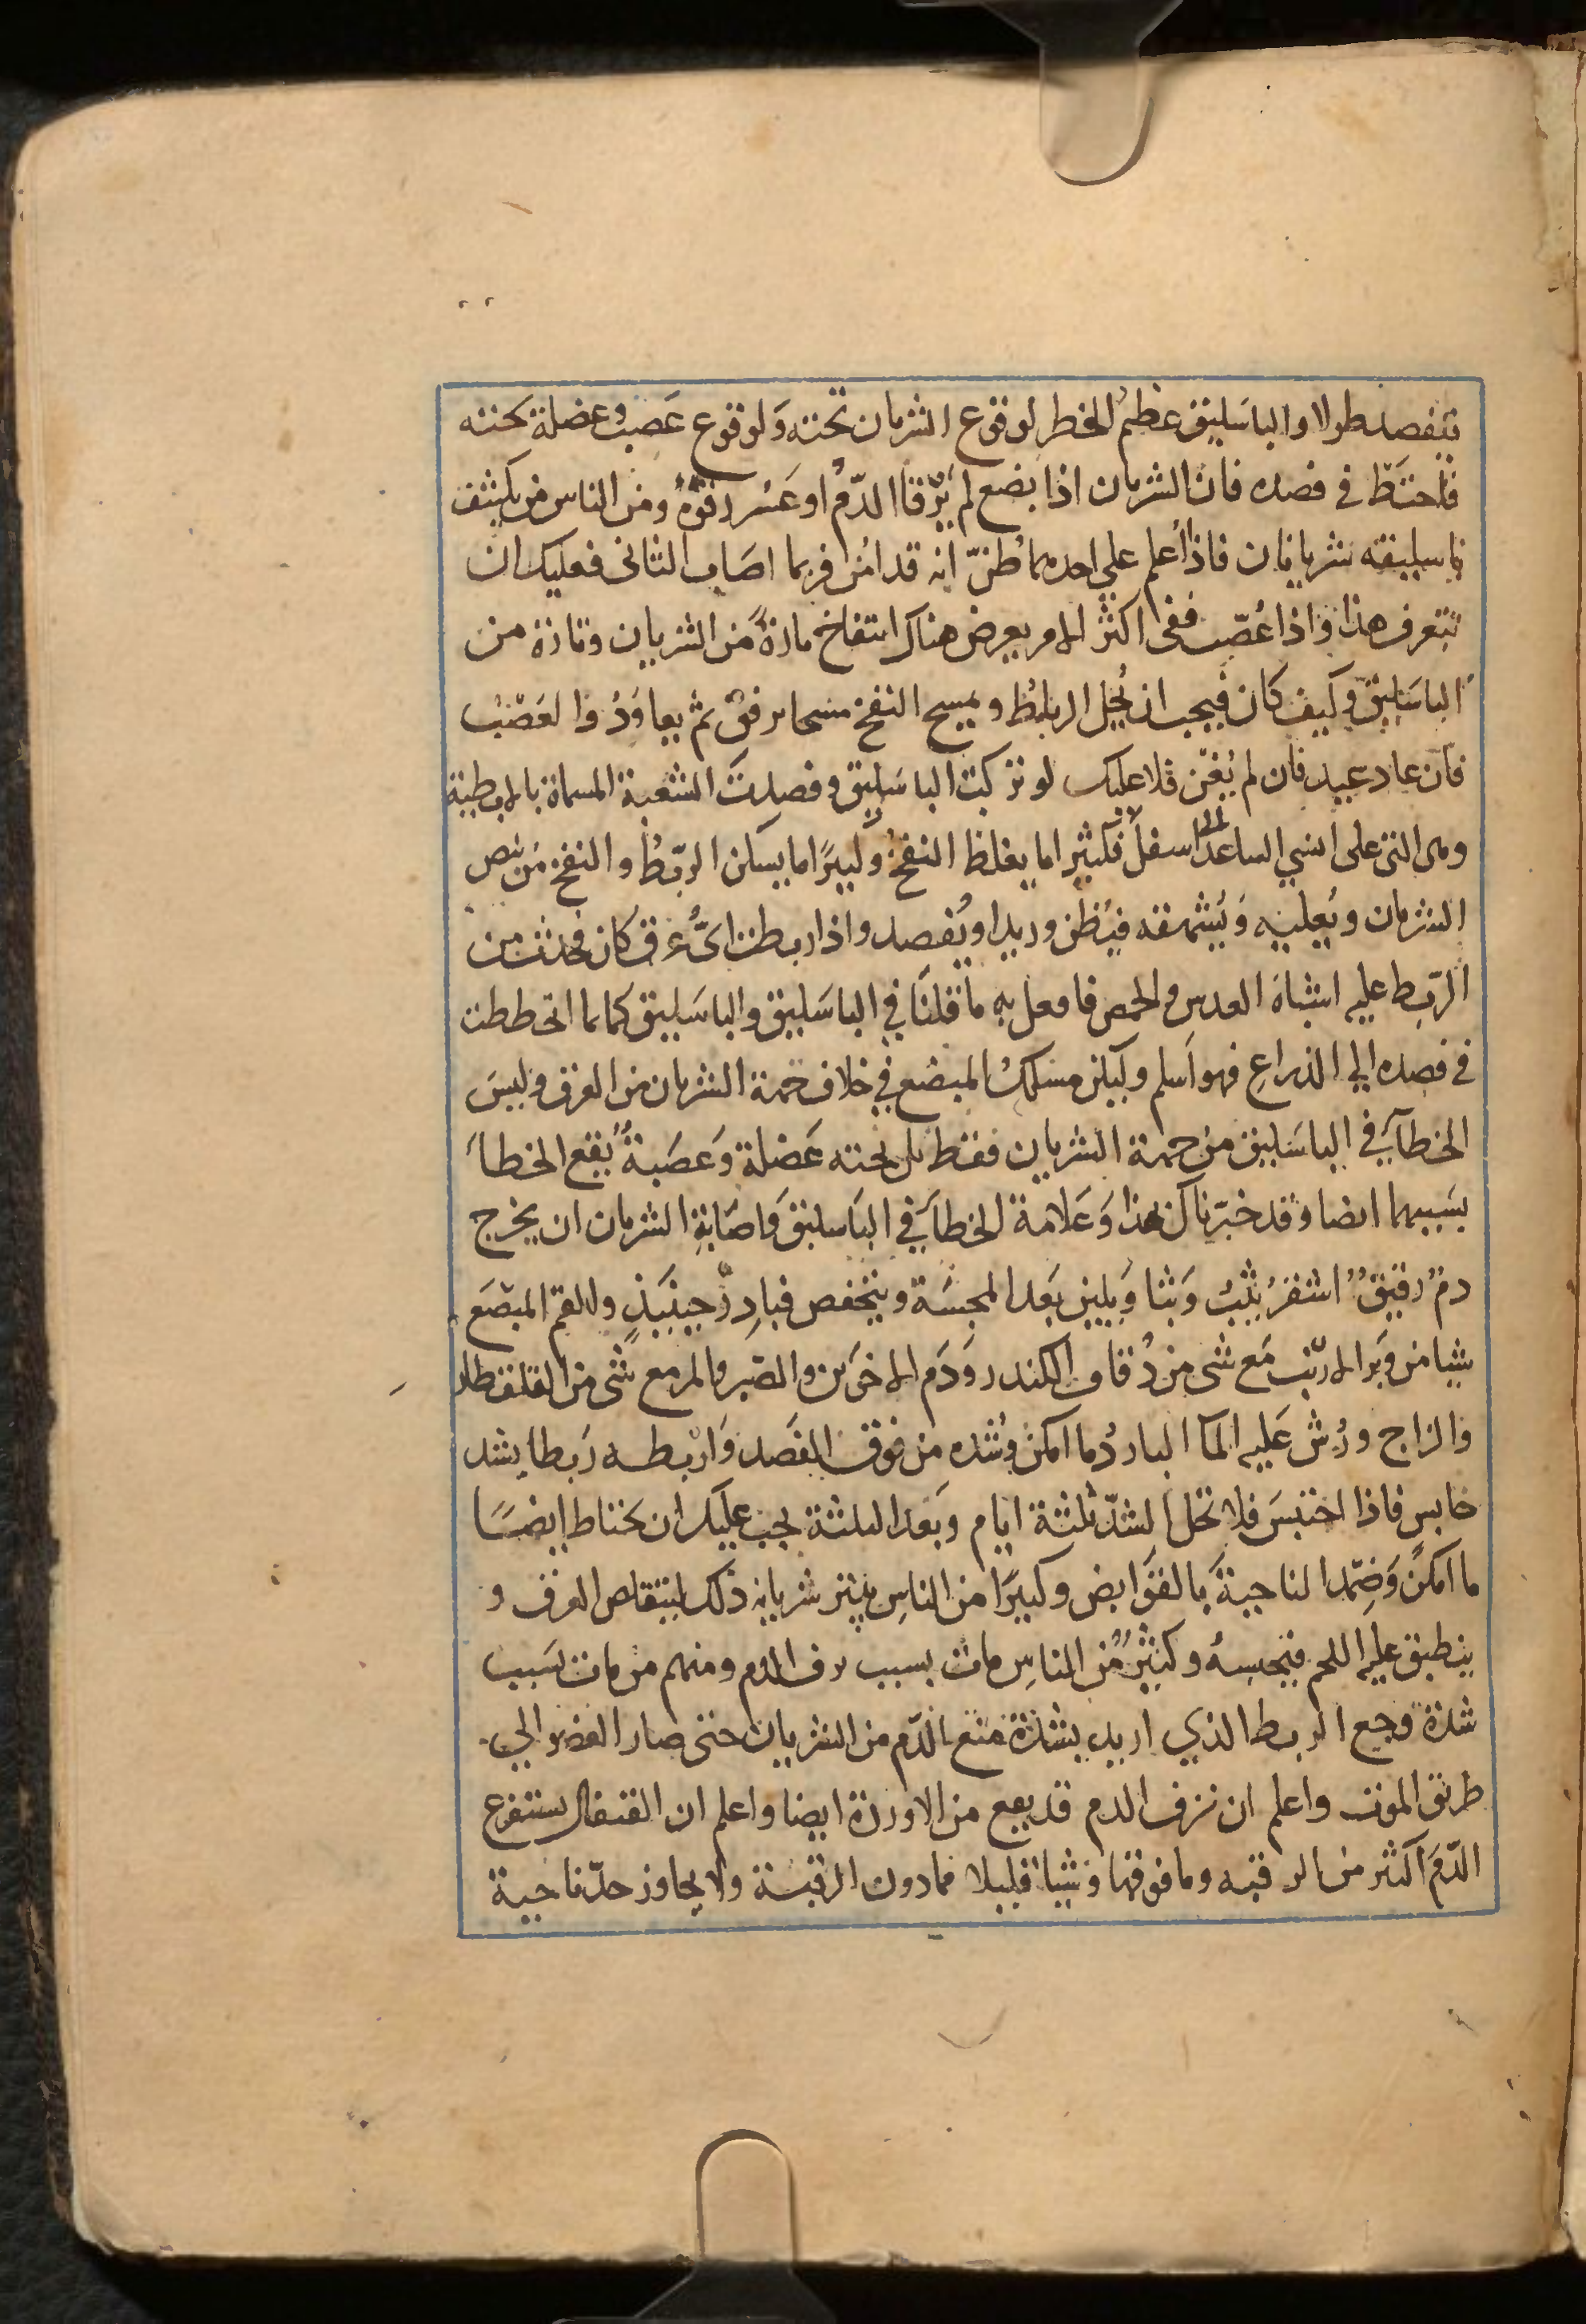 يفصد طولا والباسليق عظيم الخطر لوقوع الشريان تحته ولوقوع عصب وعضلة تحته
فاحتط في فصده فان الشريان اذا بضع لم يرقا الدم او عسر رقوه ومن الناس من يكتنف
باسليقه شريانان فاذا اعلم على احدهما ظن انه قد امن فربما اصاب الثانى فعليك ان
تتعرف هذا واذا عصب ففى اكثر الامر يعرض هناك انتفاخ تارة من الشريان وتارة من
الباسليق وكيف كان فيجب ان يحل الرباط ويمسح النفخ مسحا برفق ثم يعاود العصب
فان عاد عيد فان لم يغن فلا عليك لو تركت الباسليق وفصدت الشعبة المسماة بالابطية
وهى التى على انسي الساعد الى اسفل فكثيرا ما يغلظ النفخ وكثيرا ما يسكن الربط والنفخ من نبض
الشريان ويعليه ويشهقه فيظن وريدا ويفصد واذا ربطت اي عرق كان فحدث من
الربط عليه اشباه العدس والحمص فافعل به ما قلنا في الباسليق والباسليق كلما انحططت
في فصده الى الذراع فهو اسلم وليكن مسلك المبضع في خلاف جهة الشريان من العرق وليس
الخطأ في الباسليق من جهة الشريان فقط بل تحته عضلة وعصبة يقع الخطأ
بسببهما ايضا وقد خبرناك بهذا وعلامة الخطأ في الباسليق واصابة الشريان ان يخرج
دم رقيق اشقر يثب وثبا ويلين بعد المجسة وينخفض فبادر حينئذ والقم المبضع
شيا من وبر الارنب مع شى من دقاق الكندر ودم الاخوين والصبر والمر مع شى من القلقطار
والزاج ورش عليه الما البارد ما امكن وشده من فوق الفصد واربطه ربطا بشد
حابس فاذا احتبس فلا تحل الشد ثلثة ايام وبعد الثلثة يجب عليك ان تحتاط ايضا
ما امكن وضمد الناحية بالقوابض وكثيرا من الناس يبتر شريانه ذلك ليتقلص العرق و
ينطبق عليه اللحم فيحبسه وكثير من الناس مات بسبب نزف الدم ومنهم من مات بسبب
شدة وجع الربط الذي اريد بشدة منع الدم من الشريان حتى صار العضو الى
طريق الموت واعلم ان نزف الدم قد يقع من الاوردة ايضا واعلم ان القيفال يستفرغ
الدم اكثر من الرقبه وما فوقها وشيا قليلا مما دون الرقبة ولا يجاوز حد ناحية